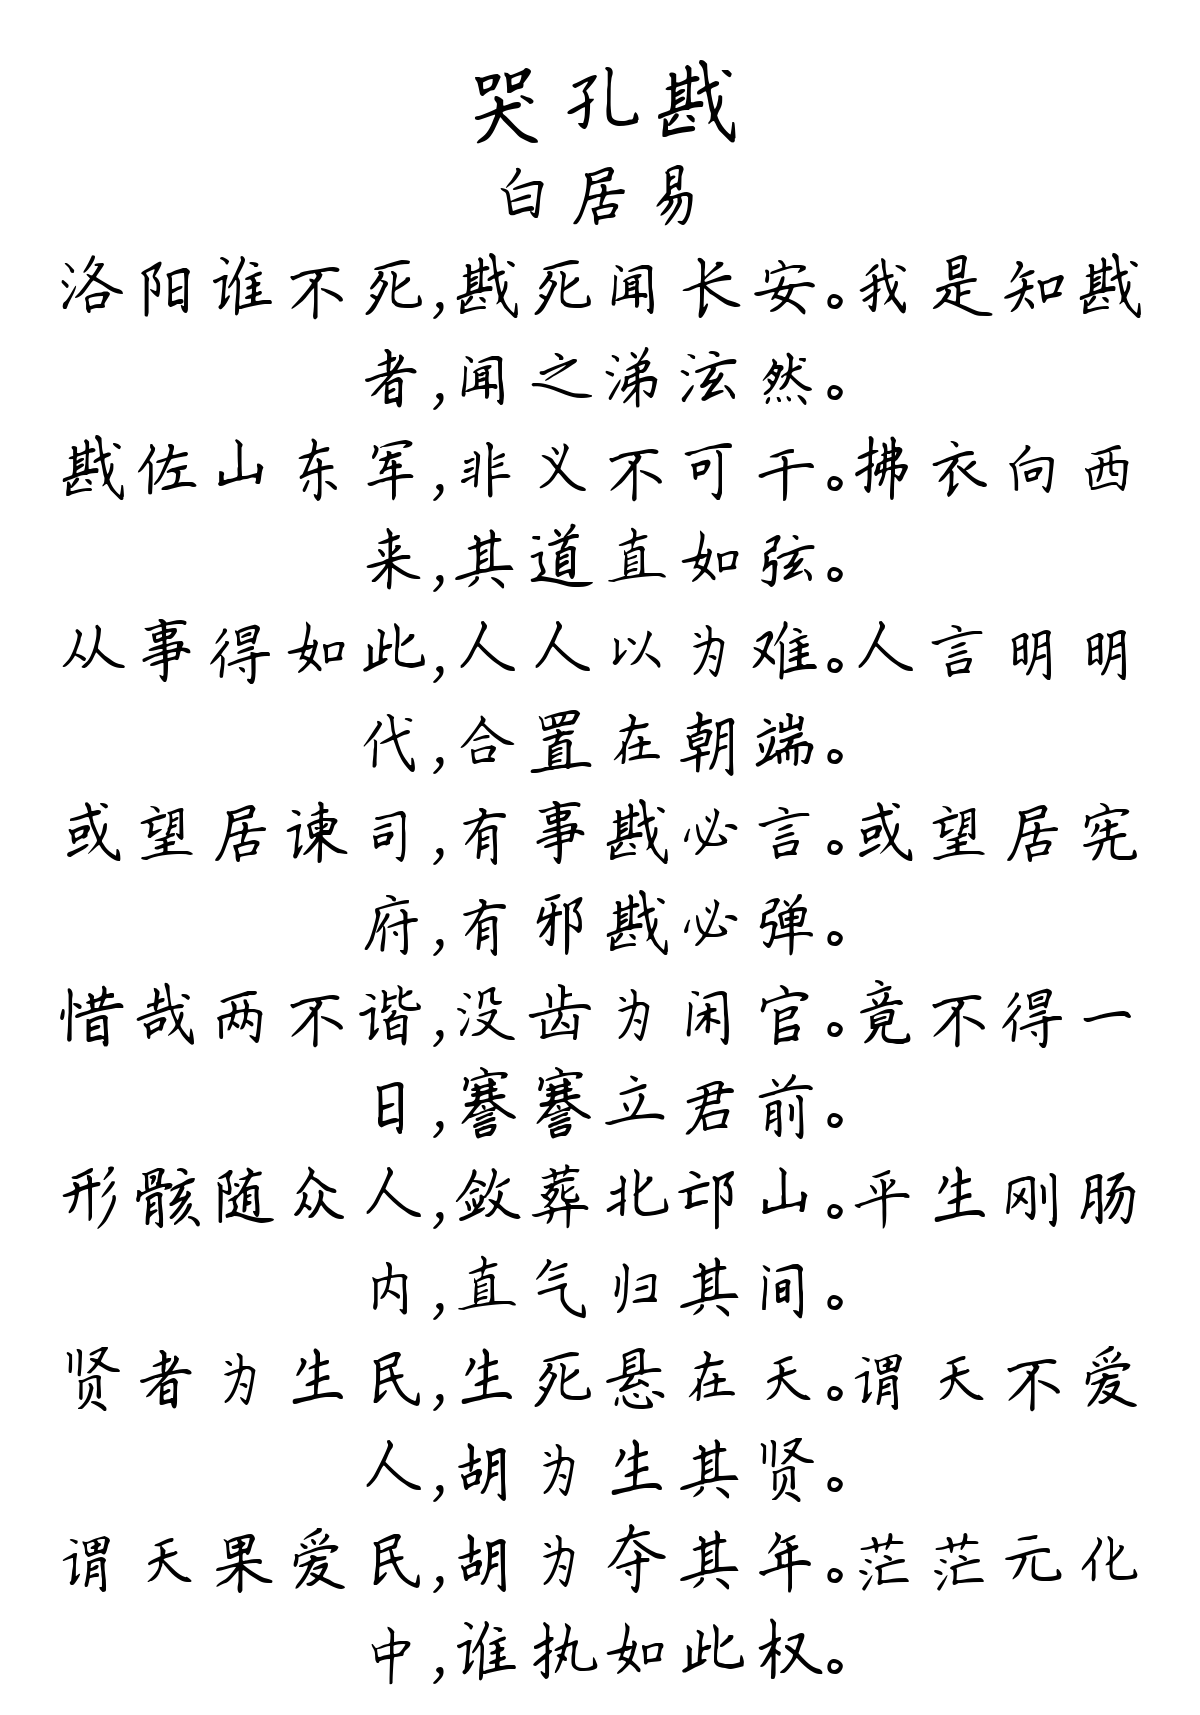 哭孔戡
白居易
洛阳谁不死,戡死闻长安。我是知戡
者,闻之涕泫然。
戡佐山东军,非义不可干。拂衣向西
来,其道直如弦。
从事得如此,人人以为难。人言明明
代,合置在朝端。
或望居谏司,有事戡必言。或望居宪
府,有邪戡必弹。
惜哉两不谐,没齿为闲官。竟不得一
日,謇謇立君前。
形骸随众人,敛葬北邙山。平生刚肠
内,直气归其间。
贤者为生民,生死悬在天。谓天不爱
人,胡为生其贤。
谓天果爱民,胡为夺其年。茫茫元化
中,谁执如此权。